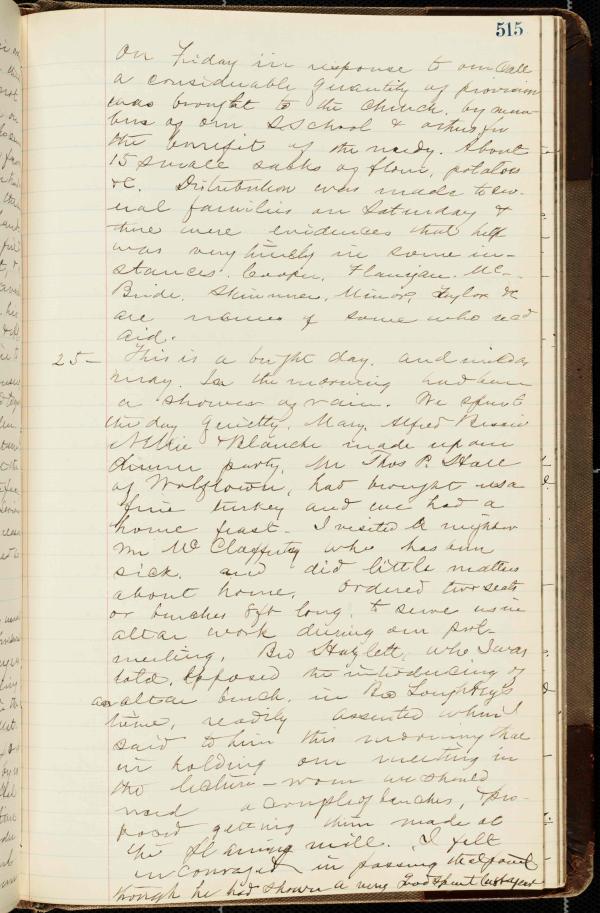 515
On Friday in response to our Call
a considerable quantity of provision
was brought to the Church, by mem-
bers of our S. School & others for
the benefit of the needy. About
15 small sacks of flour, potatoes
&c. Distribution was made to sev-
eral families on Saturday &
there were evidences that help
was very timely in some in-
stances. Cooper, Flanygan. Mc-
Bride, Skinner, Minor, Taylor &c
are names of some who rec'd
aid.
25- This is a bright day, and mild as
may. In the morning had been
a shower of rain. We spent
the day quietly. Mary, Alfred Bessie
Nellie & Blanche made up our
dinner party. Mr Thos P. Hall
of Wolftown, had brought us a
fine turkey and we had a
home feast. I visited neighbor
Mr Mc Clafferty who has been
sick, and did little matters
about home. Ordered two seats
or benches 8ft long, to serve us in
altar work during our prot-
meeting. Bro Hazlett, who I was
told, opposed the introducing of
an altar bench, in Bro Loughley's
time, readily assented when I
said to him this morning that
in holding our meeting in
the lecture-room we should
need a couple of benches, & pro-
posed getting them made at
the planing mill. I felt
incouraged in passing that point
though he had shown a very good spirit